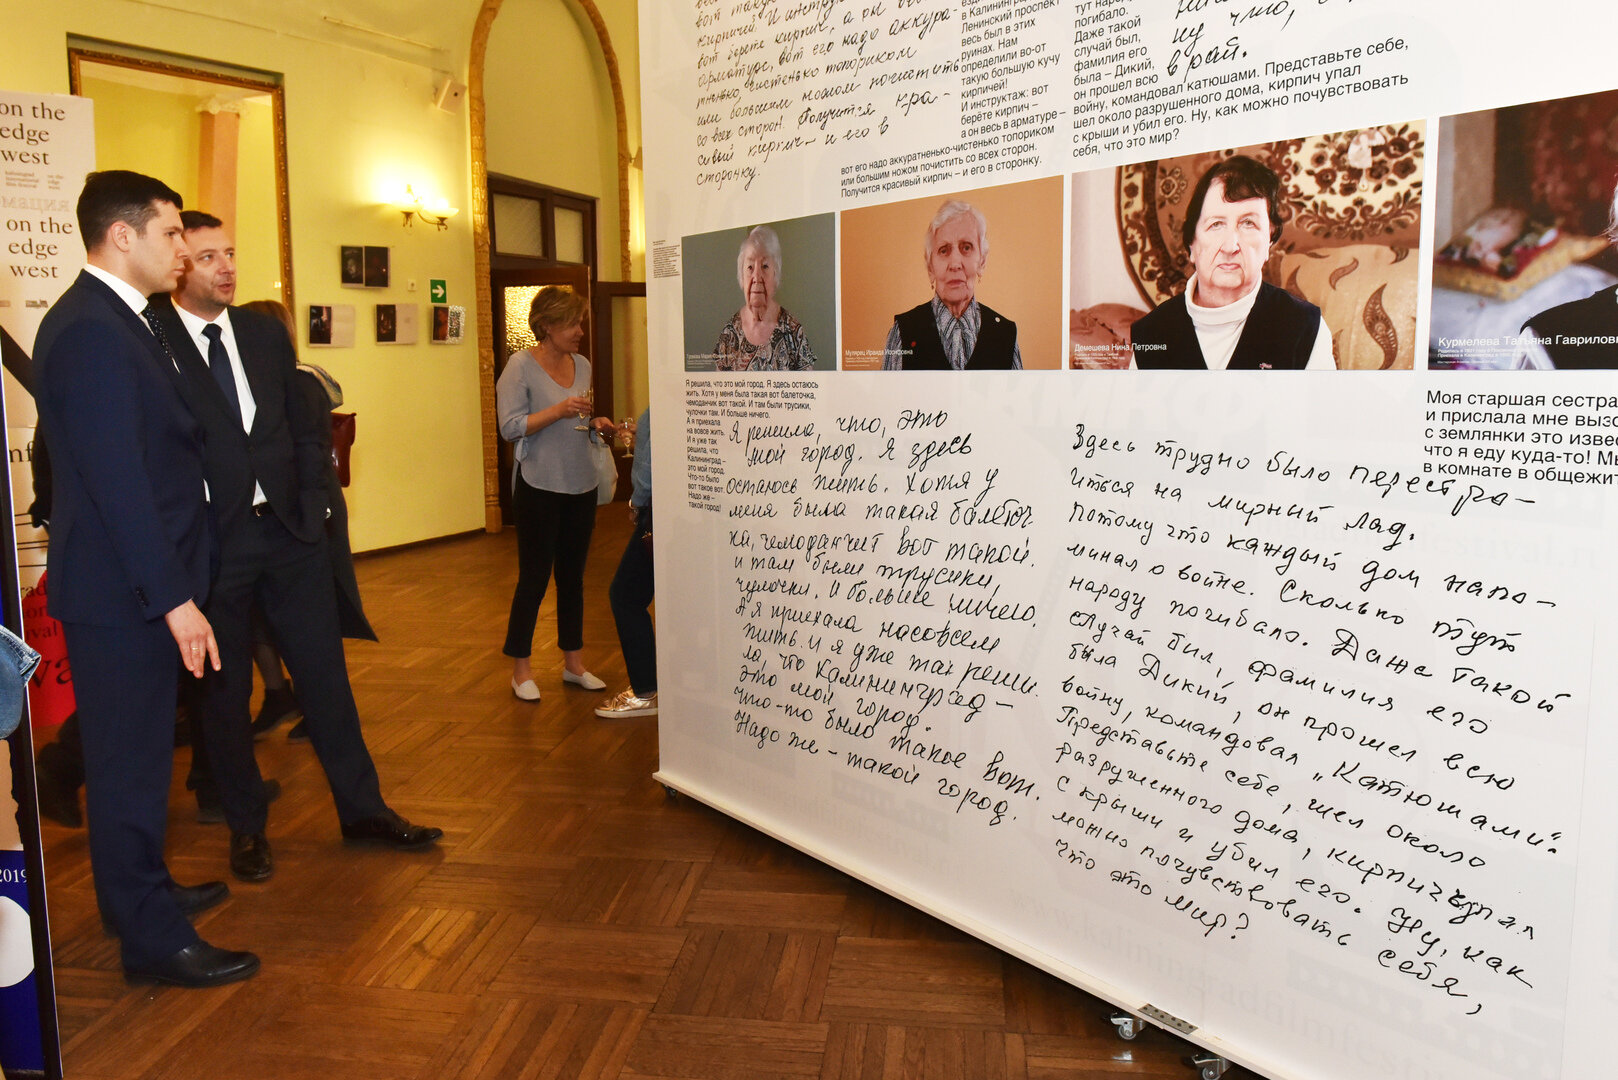 on the
edge
west
kaliningrad
international
film festival
on the
edge
west
on the
edge
west
2019
вот такую
кирпичей. И инструк
вот берете кирпич, а он весь
арматуре, вот его надо аккура-
тненько, чистенько топориком
или большим ножом почистить
со всех сторон. Получится кра-
сивый кирпич – и его в
сторонку.
в Калининград
Ленинский проспект
весь был в этих
руинах. Нам
определили во-от
такую большую кучу
кирпичей!
И инструктаж: вот
берёте кирпич –
а он весь в арматуре –
вот его надо аккуратненько-чистенько топориком
или большим ножом почистить со всех сторон.
Получится красивый кирпич – и его в сторонку.
тут народу
погибало.
Даже такой
случай был,
фамилия его
была – Дикий,
он прошел всю
войну, командовал катюшами. Представьте себе,
шел около разрушенного дома, кирпич упал
с крыши и убил его. Ну, как можно почувствовать
себя, что это мир?
ну что,
врай.
Мулярец Ираида Иосифовна
Демешева Нина Петровна
Курмелева Татьяна Гавриловн
Я решила, что это мой город. Я здесь остаюсь
жить. Хотя у меня была такая вот балеточка,
чемоданчик вот такой. И там были трусики,
чулочки там. И больше ничего.
А я приехала
на вовсе жить.
И я уже так
решила, что
Калининград –
это мой город.
Что-то было
вот такое вот.
Надо же –
такой город!
Я решила, что, это
мой город. Я здесь
остаюсь жить. Хотя у
меня была такая балеточ-
ка, чемоданчит вот такой.
и там были трусики,
чулочки. И больше ничего.
А я приехала насовсем
жить. И я уже так реши-
ла, что Калининград –
это мой город.
что-то было такое вот.
Надо же – такой город.
Здесь трудно было перестра-
иться на мирный лад.
Потому что каждый дом напо-
минал о войне. Сколько тут
народу погибало. Даже такой
случай бил, фамилия его
была Дикий, он прошел всю
войну, командовал „Катюшами".
Представьте себе, шел около
разрушенного дома, кирпич упал
с крыши и убил его. Ну, как
можно почувствовать себя,
что это мир?
Моя старшая сестра
и прислала мне вызо
с землянки это извес
что я еду куда-то! Мы
в комнате в общежит